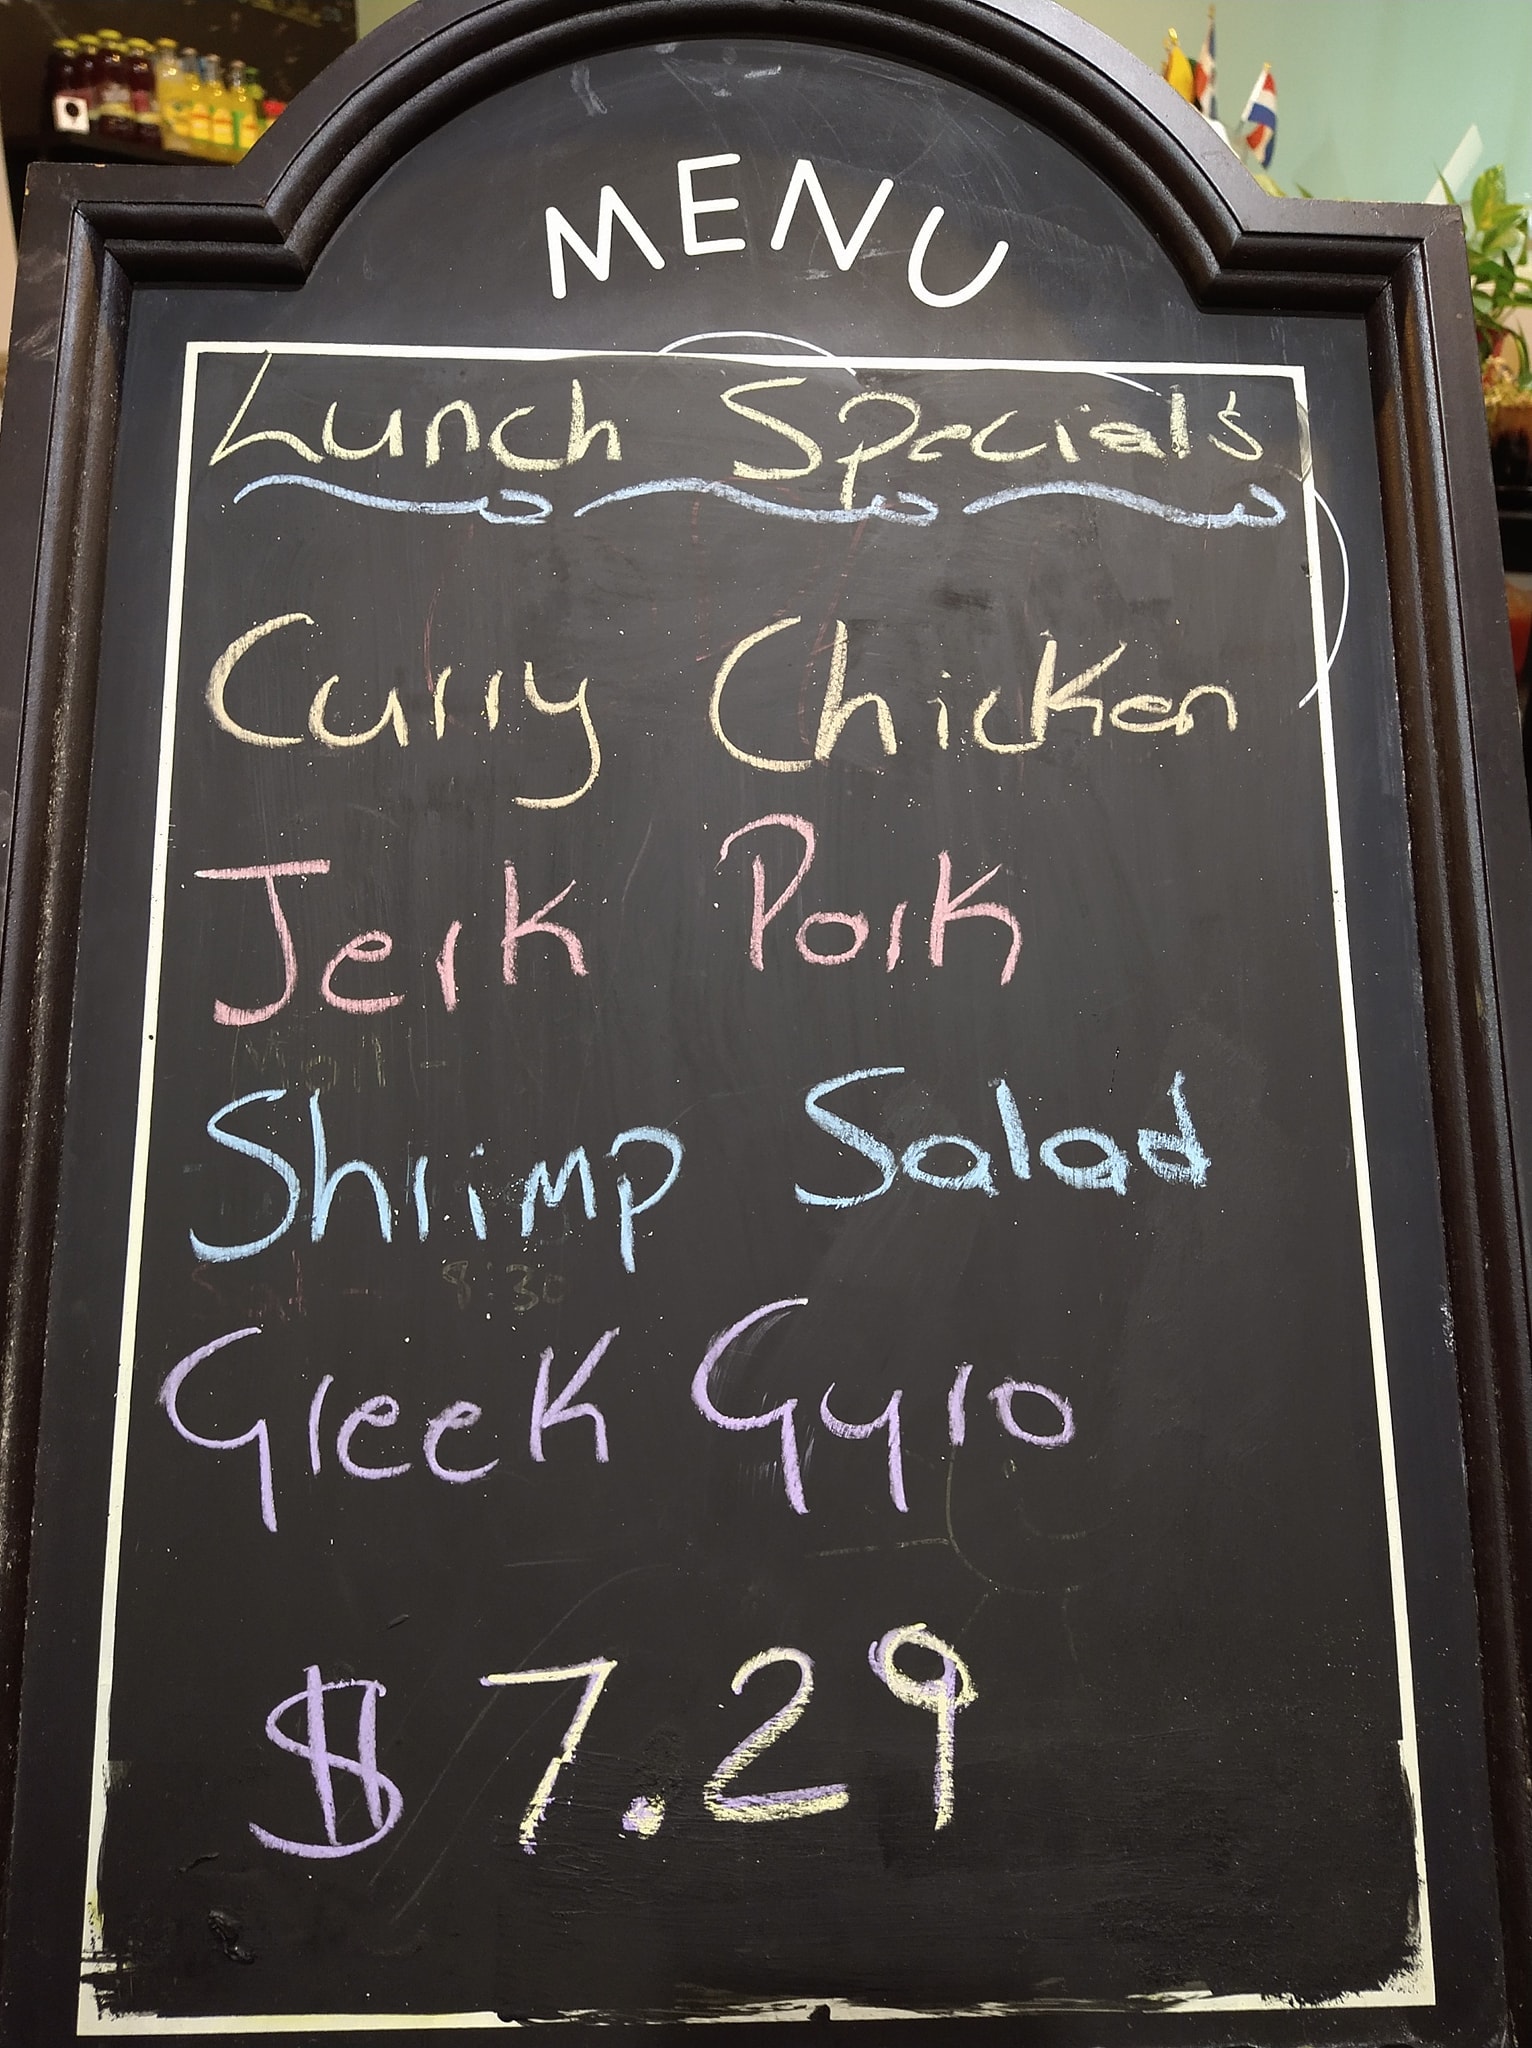 MENU
Lunch Special's
Curry Chicken
Jerk Pork
Shrimp Salad
8:30
Greek Gyro
$ 7.29